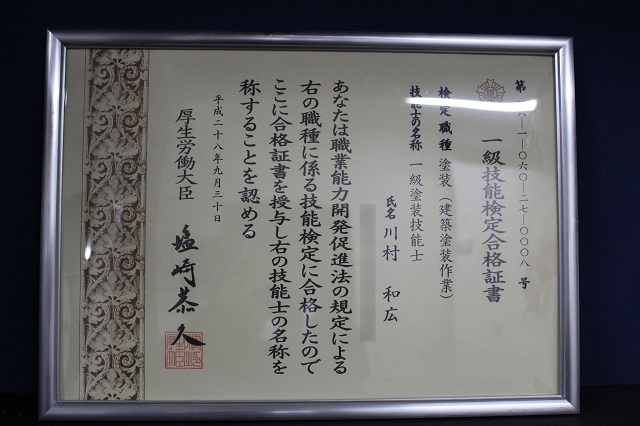 第 一〇六〇—二七—〇〇〇八 号
一級技能検定合格証書
検定職種 塗装(建築塗装作業)
技能士の名称 一級塗装技能士
氏名 川村 和広
あなたは職業能力開発促進法の規定による
右の職種に係る技能検定に合格したので
ここに合格証書を授与し右の技能士の名称を
称することを認める
平成二十八年九月三十日
厚生労働大臣 塩崎恭久